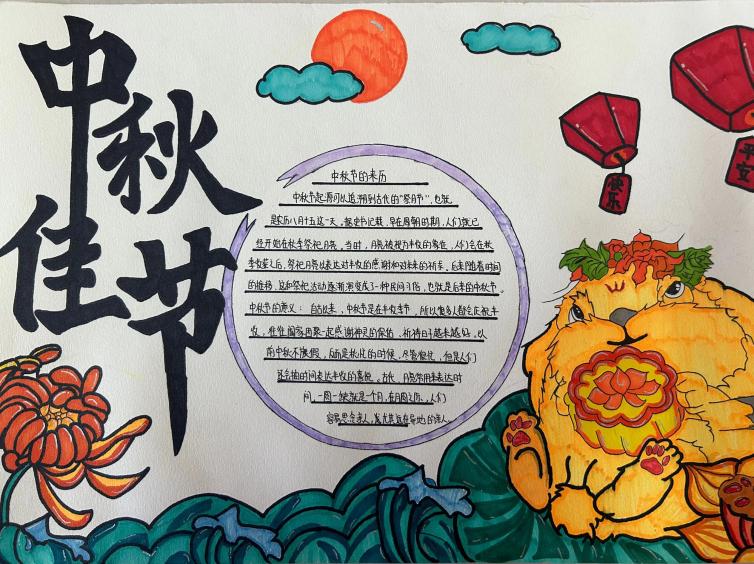 中秋佳节
快乐
平安
中秋节的来历
中秋节起源可以追溯到古代的"祭月节",也就
是农历八月十五这一天。据史书记载,早在周朝时期,人们就已
经开始在秋季祭祀月亮。当时,月亮被视为丰收的象征,人们会在秋
季收获之后,祭祀月亮以表达对丰收的感谢和对未来的祈求。后来随着时间
的推移,这种祭祀活动逐渐演变成了一种民间习俗,也就是后来的中秋节。
中秋节的意义:自古以来,中秋节是在丰收季节,所以很多人都会庆祝丰
收,往往阖家团聚一起感谢神灵的保佑,祈祷日子越来越好,以
前中秋不放假,随是秋忙的时候,尽管很忙,但是人们
还会抽时间表达丰收的喜悦,古代,月亮常用来表达时
间,一圆一缺就是一个月,在月圆之际,人们
容易思念亲人,尤其是在异地的亲人。